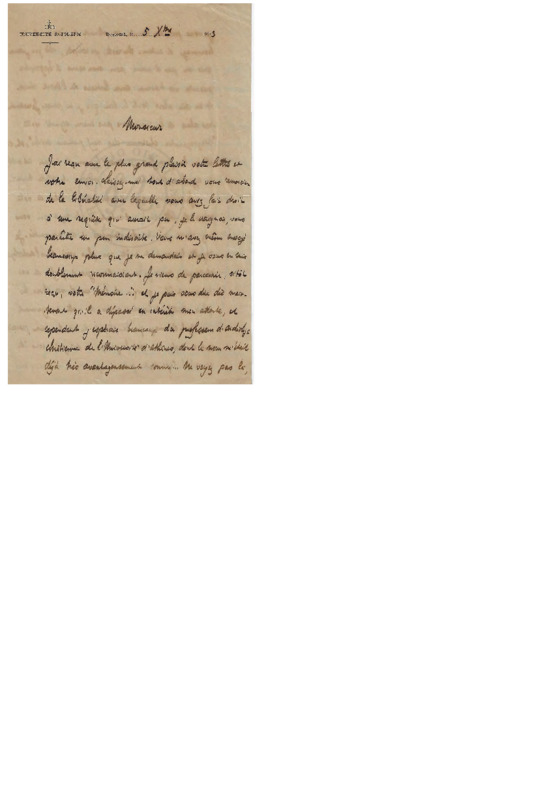 5 Xbre
Monsieur
J'ai reçu avec le plus grand plaisir votre lettre et
votre envoi. Laissez-moi tout d'abord vous remercier
de la libéralité avec laquelle vous avez fait droit
à une requête qui aurait pu, je le craignais, vous
paraître un peu indiscrète. Vous m'avez même envoyé
beaucoup plus que je ne demandais et je vous en suis
doublement reconnaissant. Je viens de parcourir, sitôt
reçu, votre "Mémoire", et je puis vous dire
qu'il a dépassé en intérêt mon attente, et
cependant j'espérais beaucoup du professeur d'archéologie
chrétienne de l'Université d'Athènes, dont le nom m'était
déjà très avantageusement connu. Ne voyez pas là,